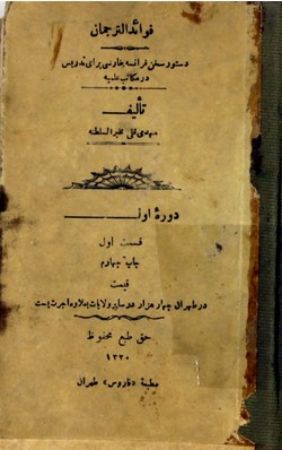 فوائد الترجمان
دستور سخن فرانسه بفارسی برای تدریس
در مکاتب علمیه
تألیف
مهدی قلی مخبر السلطنه
دورهٔ اول
قسمت اول
چاپ چهارم
قیمت
در طهران چهار هزار در سایر ولایات بعلاوه اجرت پست
حق طبع محفوظ
۱۳۳۰
مطبعهٔ «فاروس» طهران